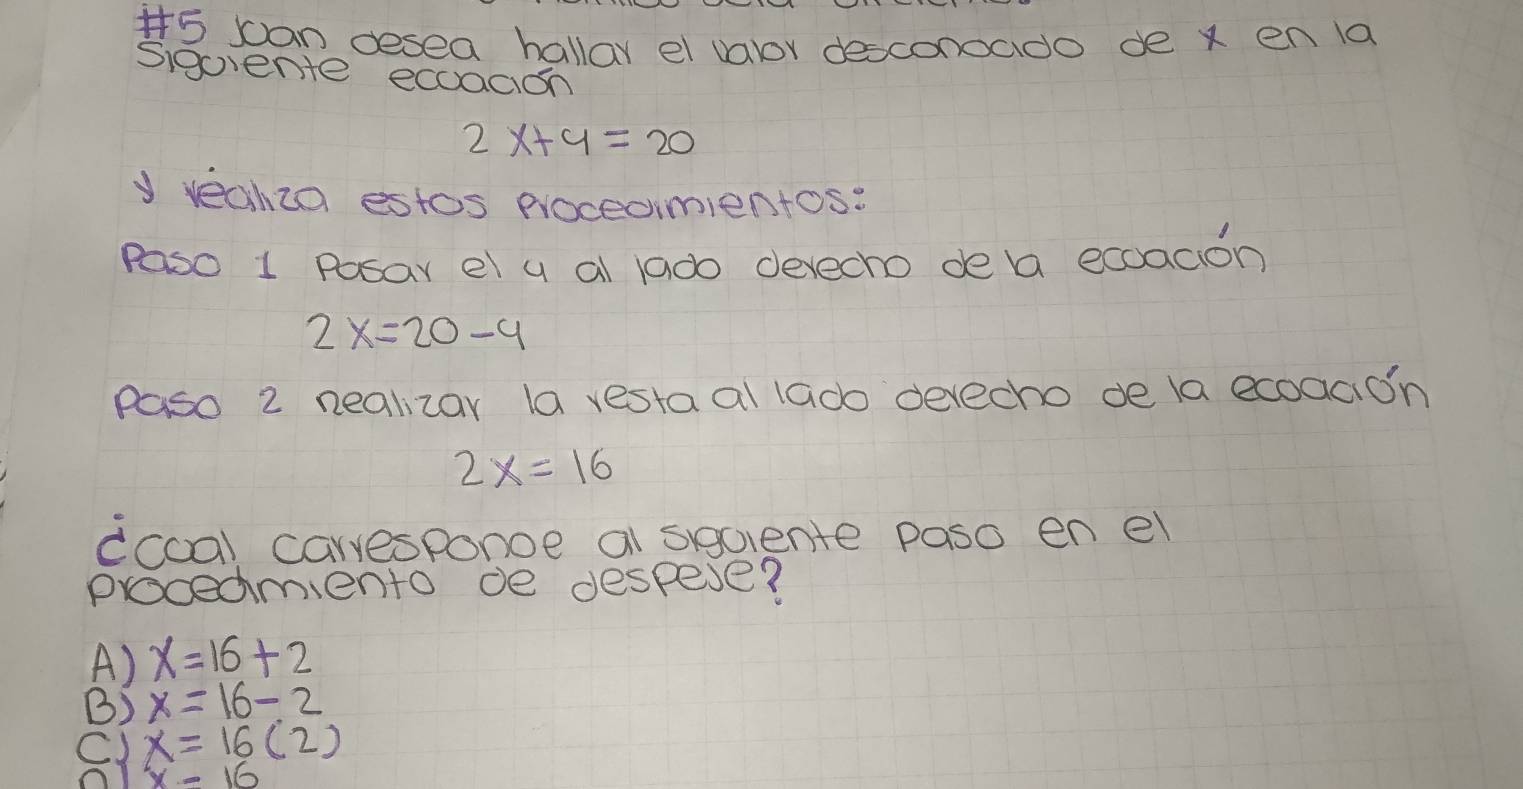 #5 Joan desea hallar el valor desconocido de x en la
siguiente ecuación
2x+4=20
y realiza estos procedimientos:
Paso 1 Pasar el 4 al lado derecho de la ecuación
2x=20-4
Paso 2 Realizar la resta al lado derecho de la ecuación
2x=16
¿cual corresponde al siguiente paso en el
procedimiento de despeje?
A) x=16+2
B) x=16-2
C) x=16(2)
D) x=16